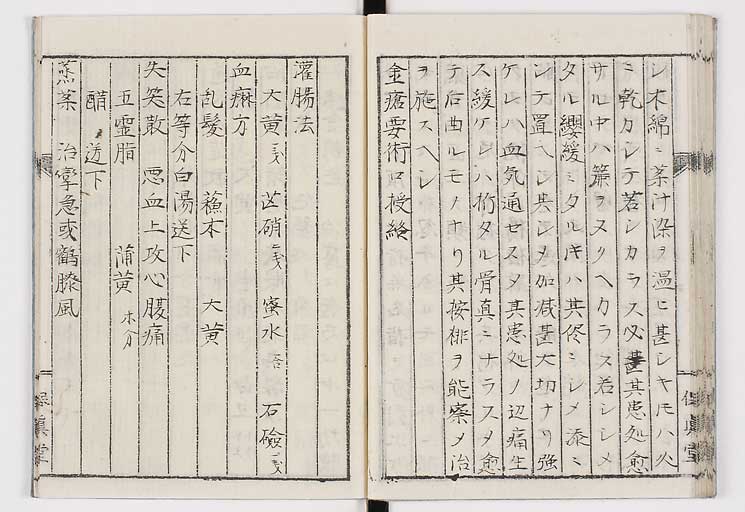 シ木綿ニ薬汁染ヲ温ヒ甚シキモハ火
ニ乾カシテ若シカラス又甚其患処愈
サル中ハ簾ヲヌクヘカラス若シシメ
タル纓緩ミタルキハ其侭ニシメ添ニ
シテ置ヘシ其シメ加減甚大切ナリ強
ケレハ血気通セスメ其患処ノ辺痛生
ス緩ケレハ折タル骨真ニナラスメ愈
テ后曲ルモノナリ其按排ヲ能察メ治
ヲ施スヘシ
金瘡要術口授終
灌腸法
大黄 芒硝 蜜水 石鹸
血癲方
乱髪 藁本 大黄
右等分白湯送下
失笑散 悪血上攻心腹痛
五霊脂 蒲黄 水分
醋ニ送下
蒸薬 治攣急或鶴膝風
保真堂
保真堂